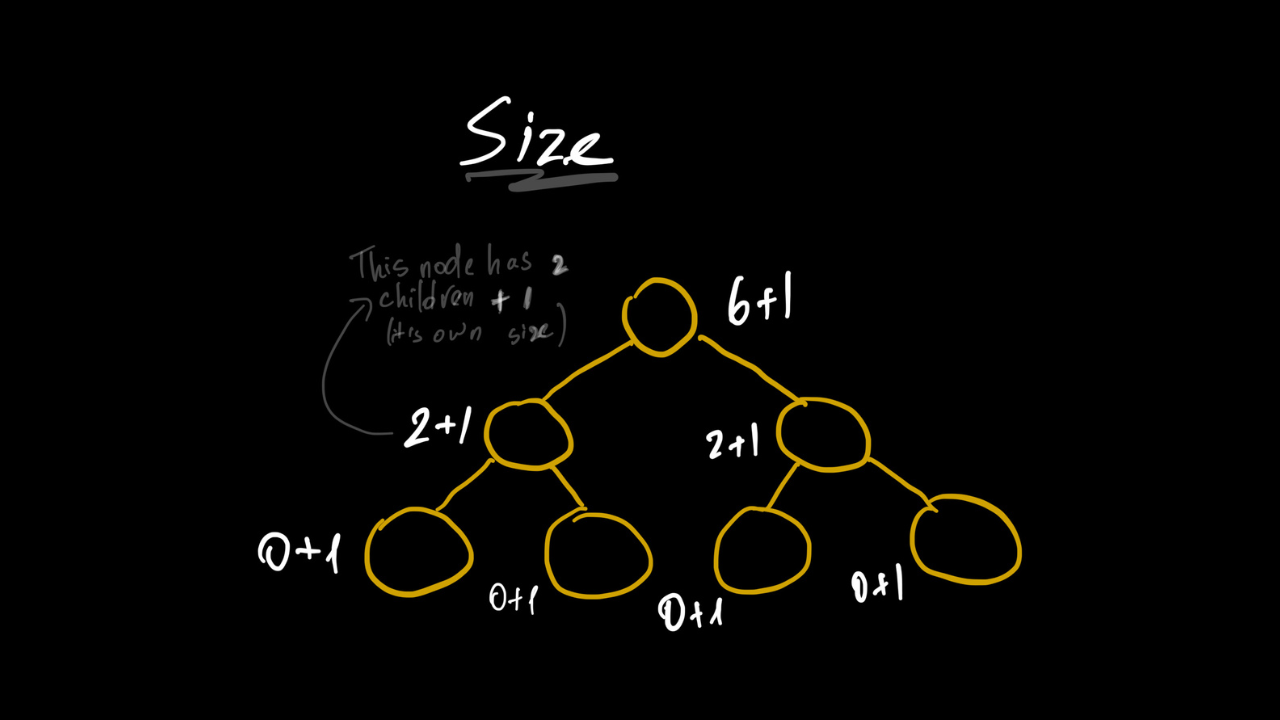 Size
This node has 2
children + 1
(it's own size)
6+1
2+1
2+1
0+1
0+1
0+1
0+1